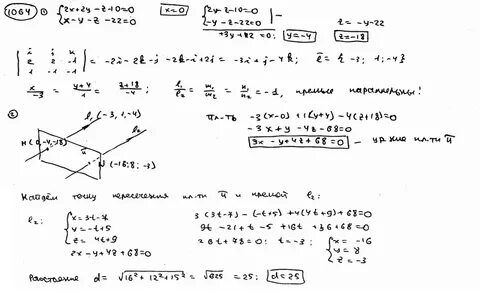 1064 ① { 2x+2y-z-10=0 x-y-z-22=0 x=0 { 2y-z-10=0 -y-z-22=0 | -
+3y+12=0; y=-4 z=-y-22 z=-18
| i j k 2 2 -1 1 -1 -1 | = -2i-2k-j-2k-i+2j = -3i+j-4k; l={-3; 1; -4}
x/-3 = y+4/1 = z+18/-4; l₁/l₂ = m₁/m₂ = n₁/n₂ = -1, прямые параллельны!
② l₁(-3, 1, -4) l₂
M(0,-4,-18) π N(-16; 8; -3)
пл-ть -3(x-0)+1(y+4)-4(z+18)=0
-3x+y-4z-68=0
3x-y+4z+68=0 - ур-ние пл-ти π
Найдём точку пересечения пл-ти π и прямой l₂:
l₂: { x=3t-7 y=-t+5 z=4t+9 3x-y+4z+68=0
3(3t-7)-(-t+5)+4(4t+9)+68=0
9t-21+t-5+16t+36+68=0
26t+78=0; t=-3; { x=-16 y=8 z=-3
Расстояние d= √16²+12²+15² = √625 = 25; d=25